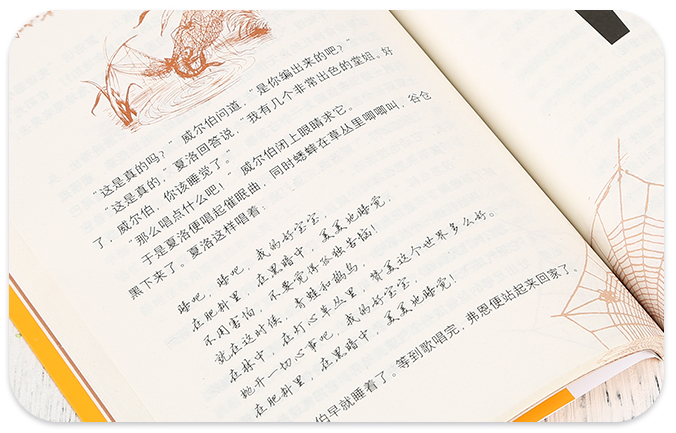 “这是真的吗？”威尔伯问道，“是你编出来的吧？”
“这是真的，”夏洛回答说，“我有几个非常出色的堂姐，好
了，威尔伯，你该睡觉了。”
“那么唱点什么吧！”威尔伯闭上眼睛求它。
于是夏洛便唱起催眠曲，同时蟋蟀在草丛里唧唧叫，谷仓
黑下来了。夏洛这样唱着：
睡吧，睡吧，我的好宝宝，
在肥料里，在黑暗中，美美地睡觉，
不用害怕，不要觉得孤独苦恼！
就在这时候，青蛙和鸫鸟，
在林中，在灯心草丛里，赞美这个世界多么好。
抛开一切心事吧，我的好宝宝，
在肥料里，在黑暗中，美美地睡觉！
伯早就睡着了。等到歌唱完，弗恩便站起来回家了。